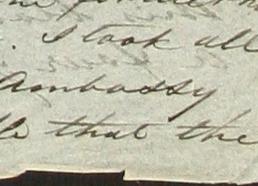 . I took all
Ambassy
that the